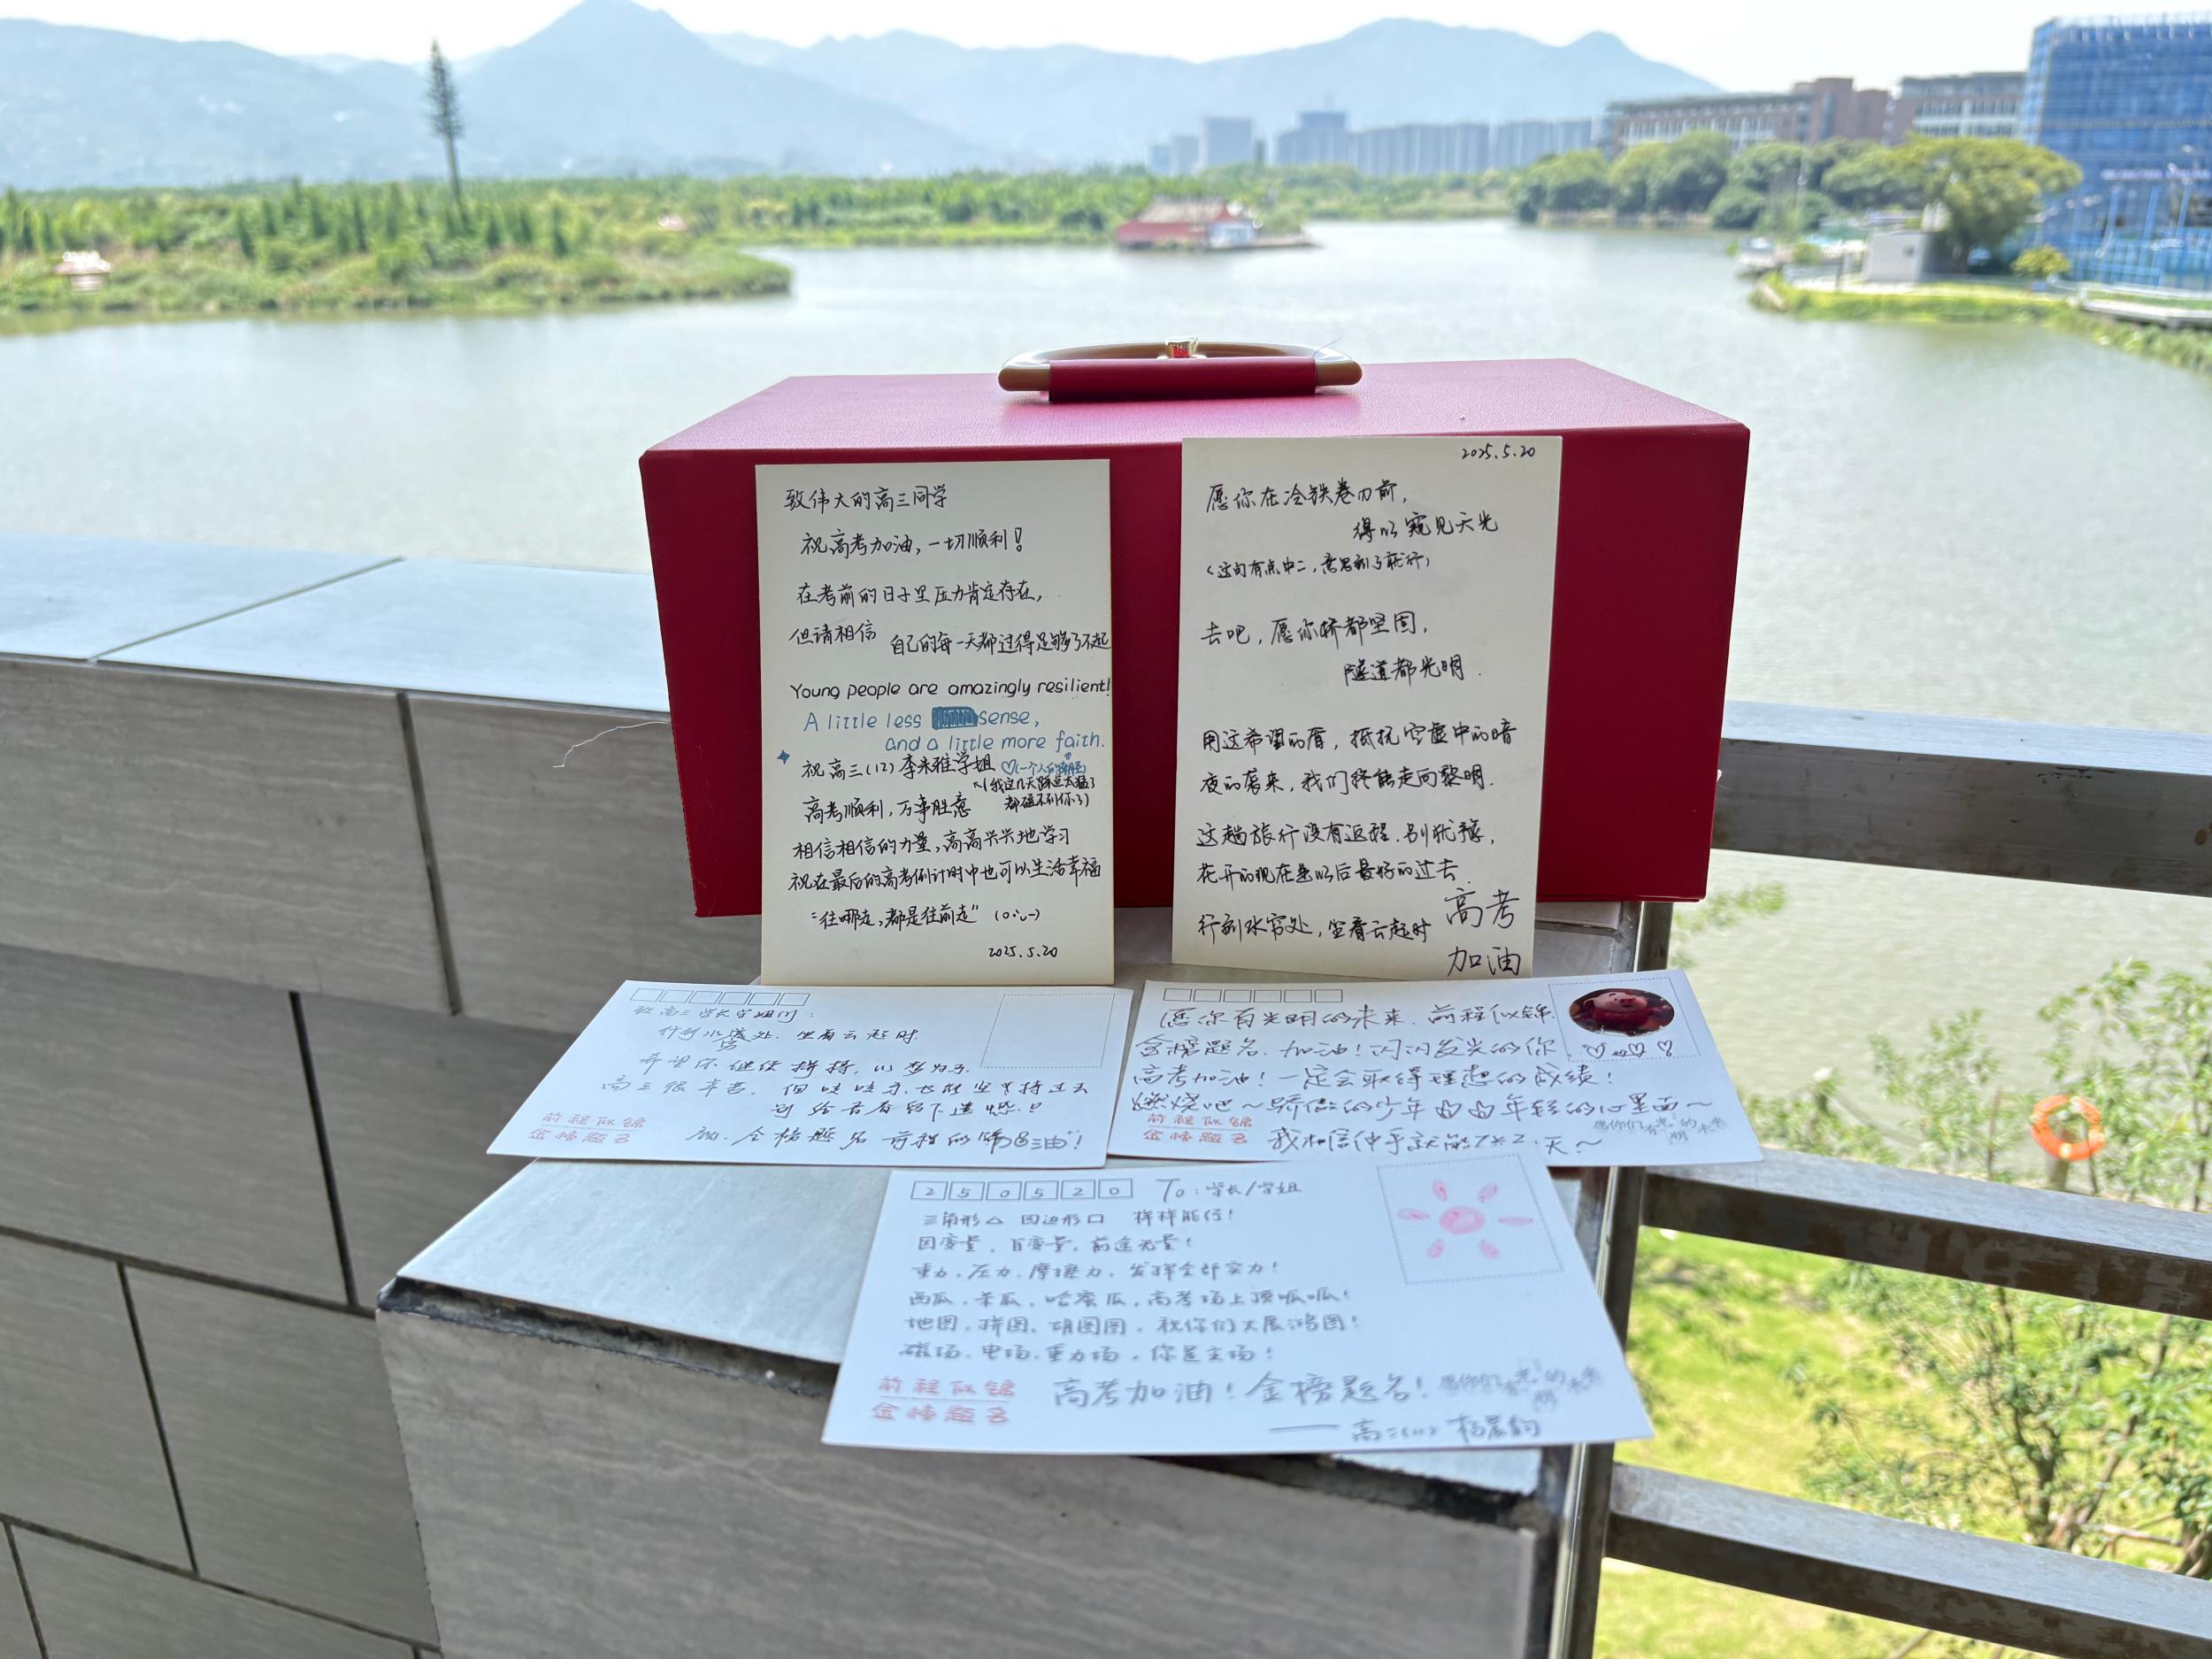 致伟大的高三同学
祝高考加油，一切顺利！
在考前的日子里压力肯定存在，
但请相信 自己的每一天都过得足够了不起
Young people are amazingly resilient!
A little less sense,
and a little more faith.
祝高三(12)李朱雅学姐
(我这几天
都碰不到你了)
高考顺利，万事胜意
相信相信的力量，高高兴兴地学习
祝在最后的高考倒计时中也可以生活幸福
"往哪走，都是往前走"
2025.5.20
2025.5.20
愿你在冷铁卷刃前，
得以窥见天光
(这句有点中二，意思到了就行)
去吧，愿你桥都坚固，
隧道都光明.
用这希望的盾，抵抗空虚中的暗
夜的袭来，我们终能走向黎明.
这趟旅行没有返程.别犹豫，
花开的现在是以后最好的过去.
行到水穷处，坐看云起时
高考
加油
致高三学长学姐们：
行到水穷处，坐看云起时.
希望你继续拼搏，以梦为马.
高三很辛苦，但咬咬牙也能坚持过去
别给青春留下遗憾.
愿.金榜题名 前程似锦
前程似锦
金榜题名
愿你有光明的未来.前程似锦.
金榜题名.加油！闪闪发光的你
高考加油！一定会取得理想的成绩！
燃烧吧～骄傲的少年 年轻的心里面～
我相信伸手就能 天～
前程似锦
金榜题名
愿你们有光明的未来
250520 To：学长/学姐
三角形△ 四边形口 样样能行！
因变量，自变量，前途无量！
重力，压力，摩擦力，发挥全部实力！
西瓜，木瓜，哈密瓜，高考场上顶呱呱！
地图，拼图，胡图图，祝你们大展鸿图！
磁场，电场，重力场，你是主场！
高考加油！金榜题名！
愿你们有光明的未来
前程似锦
金榜题名